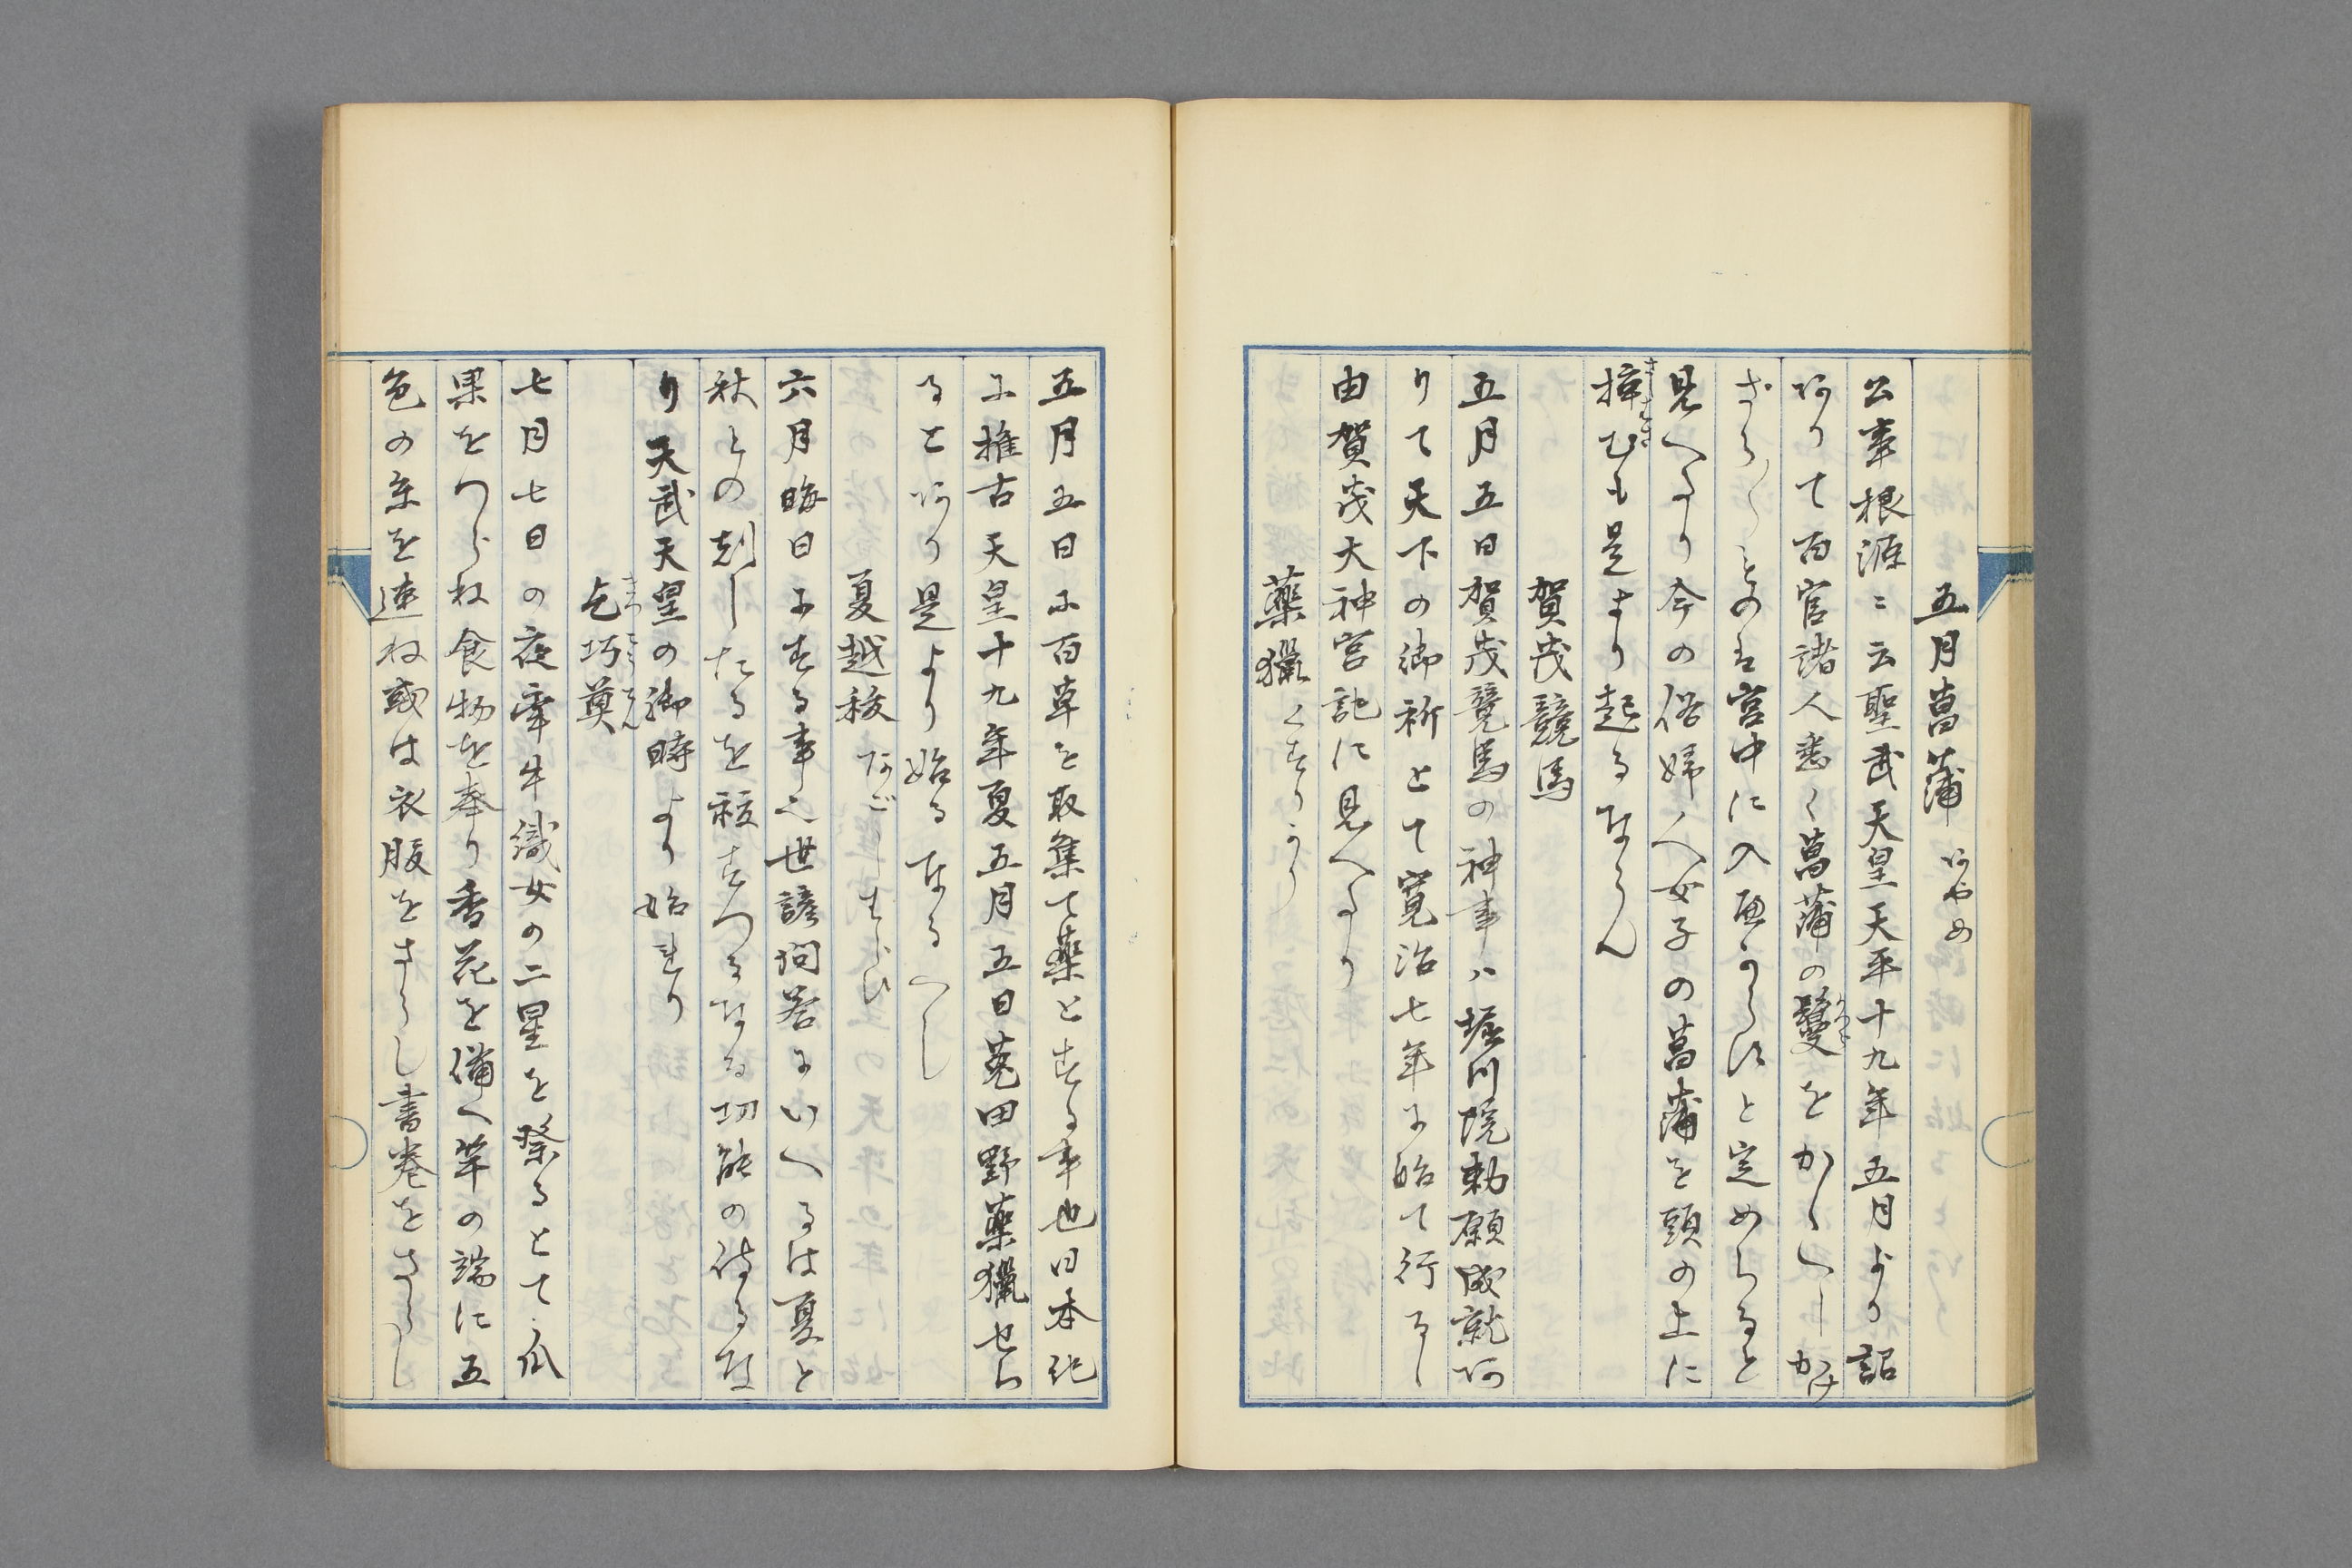 五月菖蒲 あやめ
公事根源ニ云聖武天皇天平十九年五月より詔
ありて百官諸人悉く菖蒲の鬘をかくへしかけ
ざらんものは宮中に入へからずと定めらると
見へたり今の俗婦人女子の菖蒲を頭の上に
挿むも是より起るならん
賀茂競馬
五月五日賀茂競馬の神事ハ堀川院勅願成就あ
りて天下の御祈とて寛治七年に始て行るし
由賀茂大神宮記に見へたり
薬獵 くすりかり
五月五日に百草を取集て薬とする事也日本紀
に推古天皇十九年夏五月五日菟田野薬獵せら
るとあり是より始るなるへし
夏越秡 なごしはらひ
六月晦日にする事也世諺問答にいへるは夏と
秋との尅したるを秡すつるなる切能の侍るな
り天武天皇の御時より始れり
乞巧奠 きつこうてん
七月七日の夜牽牛織女の二星を祭るとて瓜
果をつらね食物を奉り香花を備へ竿の端に五
色の糸を連ね或は衣服をさらし書巻をさらし